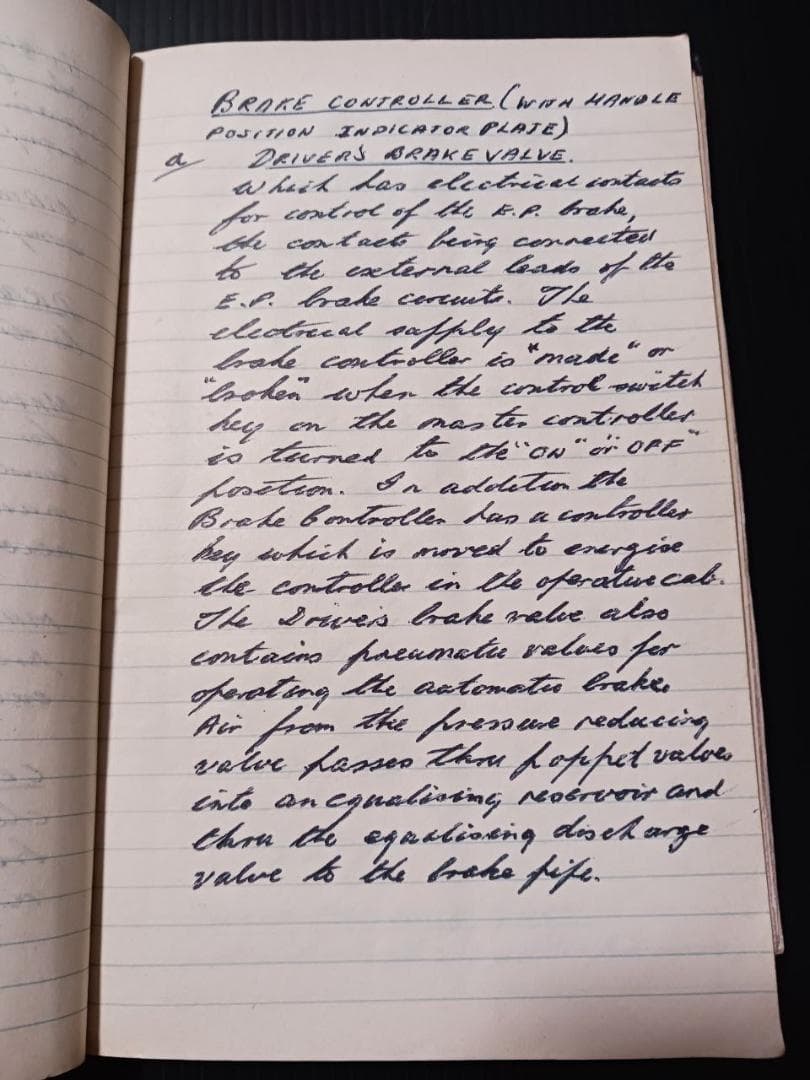 BRAKE CONTROLLER (WITH HANDLE
POSITION INDICATOR PLATE)
a/ DRIVER'S BRAKE VALVE.
Which has electrical contacts
for control of the E.P. brake,
the contacts being connected
to the external leads of the
E.P. brake circuits. The
electrical supply to the
brake controller is "made" or
"broken" when the control switch
key on the master controller
is turned to the "ON" or "OFF"
position. In addition the
Brake Controller has a controller
key which is moved to energise
the controller in the operative cab.
The Driver's brake valve also
contains pneumatic valves for
operating the automatic brake.
Air from the pressure reducing
valve passes thru poppet valves
into an equalising reservoir and
thru the equalising discharge
valve to the brake pipe.